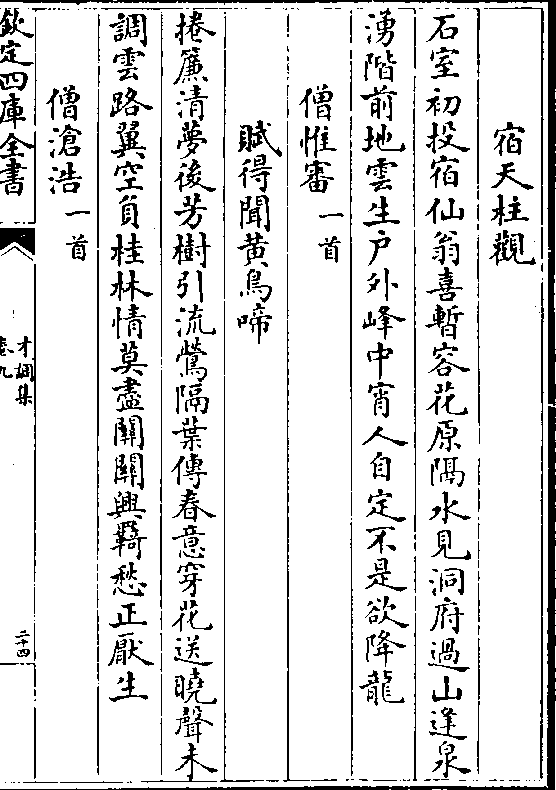 宿天柱觀
石室初投宿仙翁喜暫容花原隔水見洞府過山逢泉
湧階前地雲生户外峰中宵人自定不是欲降龍
僧惟審一首
賦得聞黃鳥啼
捲簾清夢後芳樹引流鶯隔葉傳春意穿花送曉聲未
調雲路翼空負桂林情莫盡關關興羇愁正厭生
僧滄浩一首
欽定四庫全書
才調集
卷九
二十四